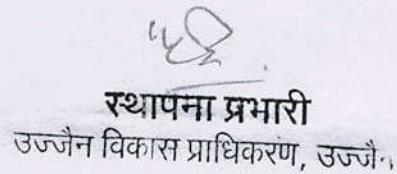 स्थापना प्रभारी
उज्जैन विकास प्राधिकरण, उज्जैन